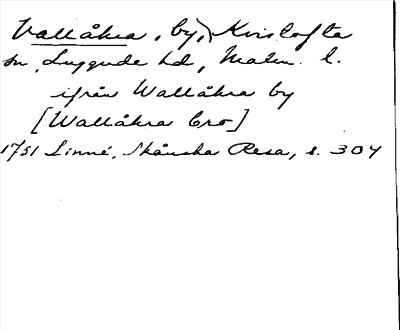 Vallåkra, by, Kvistofta
sn, Luggude hd, Malm. l.
ifrån Wallåkra by
[Wallåkra bro]
1751 Linné, Skånska Resa, s. 304